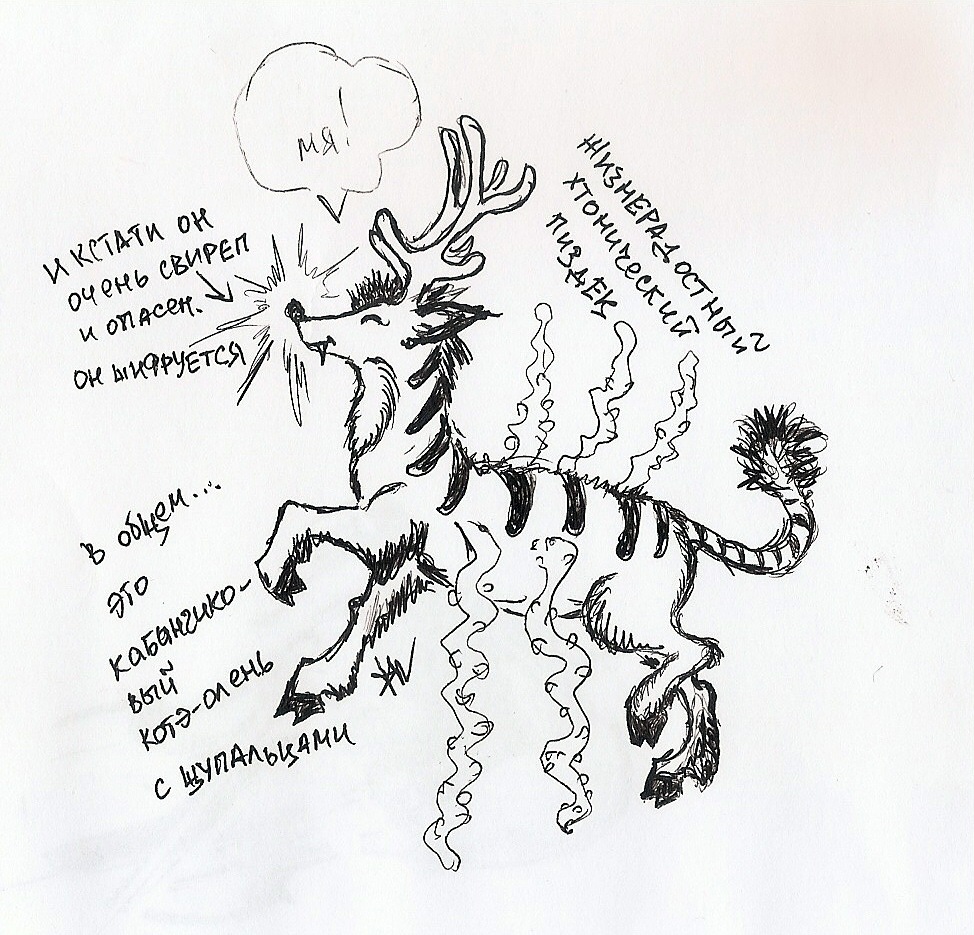 мя!
И КСТАТИ ОН
ОЧЕНЬ СВИРЕП
И ОПАСЕН.
ОН ШИФРУЕТСЯ
ЖИЗНЕРАДОСТНЫЙ
ХТОНИЧЕСКИЙ
ПИЗДЕК
В общем...
ЭТО
КАБАНЧИКО-
ВЫЙ
КОТЭ-ОЛЕНЬ
С ЩУПАЛЬЦАМИ